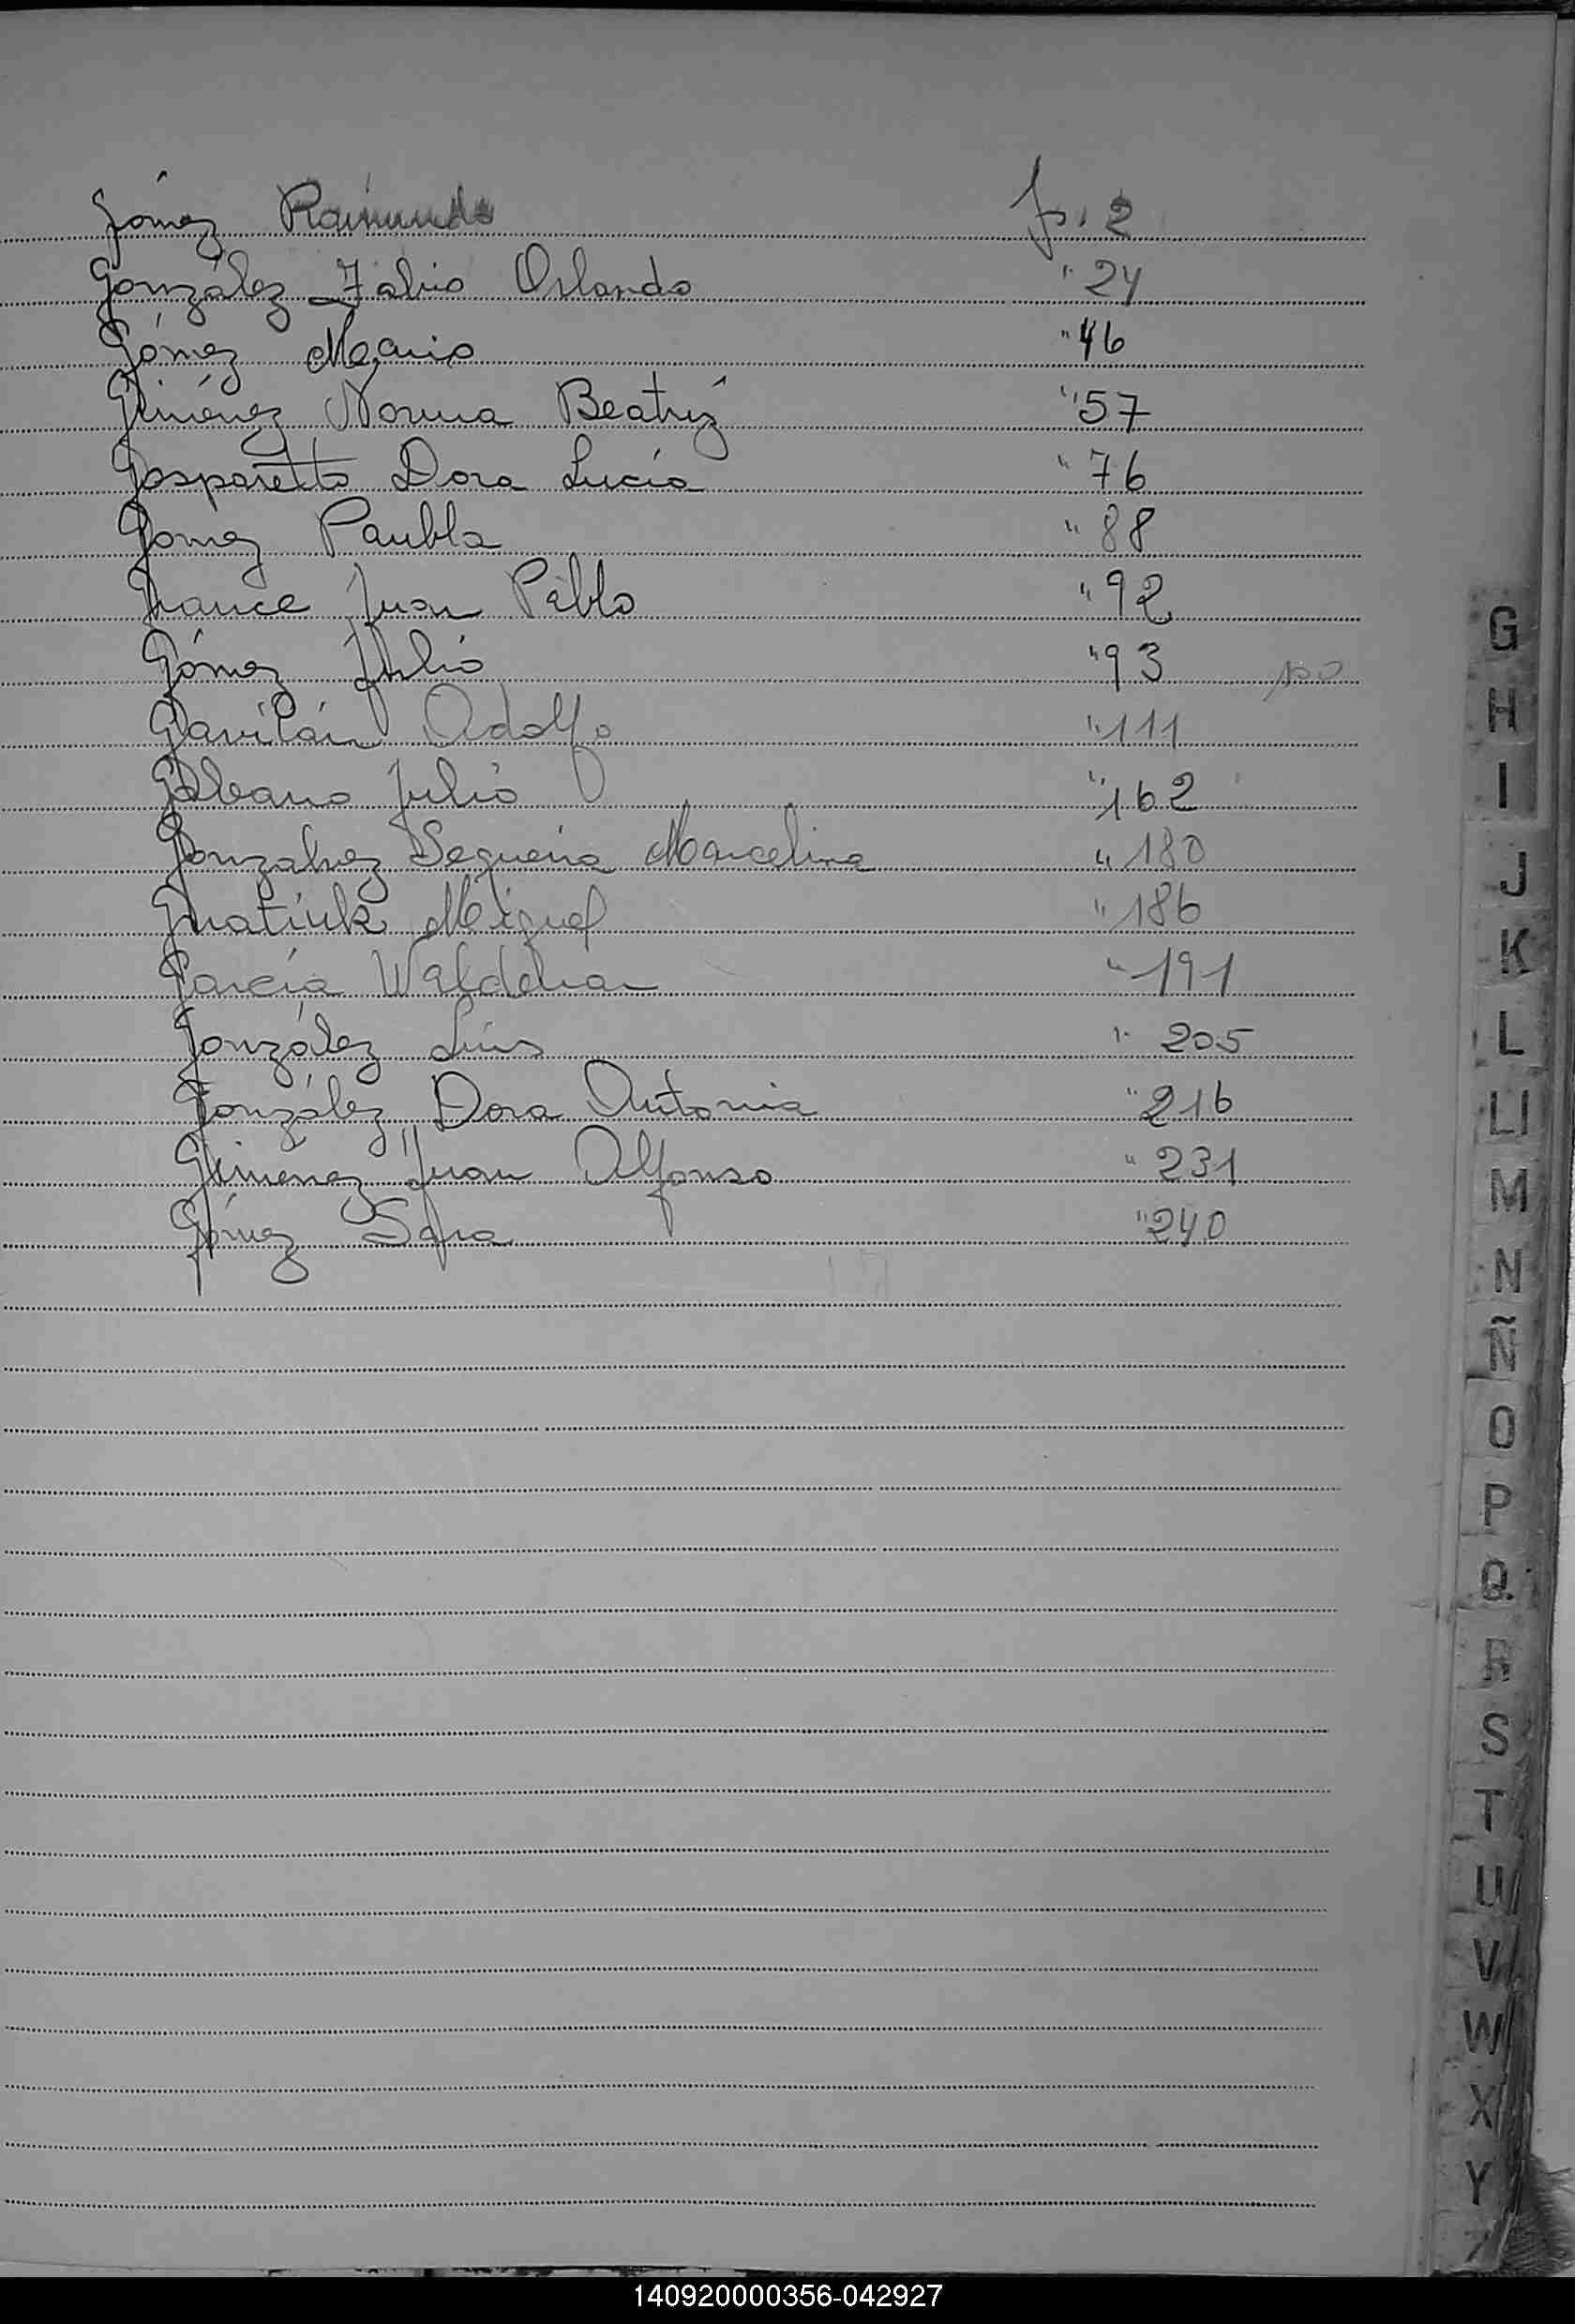 Gómez Raimundo fs. 2
González Fabio Orlando " 24
Gómez Mario " 46
Giménez Norma Beatriz " 57
Gasparetto Dora Lucía " 76
Gomez Paubla " 88
Juan Pablo " 92
Gómez Julio " 93
Gavilán Adolfo " 111
Galeano Julio " 162
Gonzalvez Sequeira Marcelina " 180
Gnatiuk Miguel " 186
García Waldemar " 191
González Luis " 205
González Dora Antonia " 216
Giménez Juan Alfonso " 231
Gómez Sara " 240
G
H
I
J
K
L
Ll
M
N
Ñ
O
P
Q
R
S
T
U
V
W
X
Y
Z
140920000356-042927